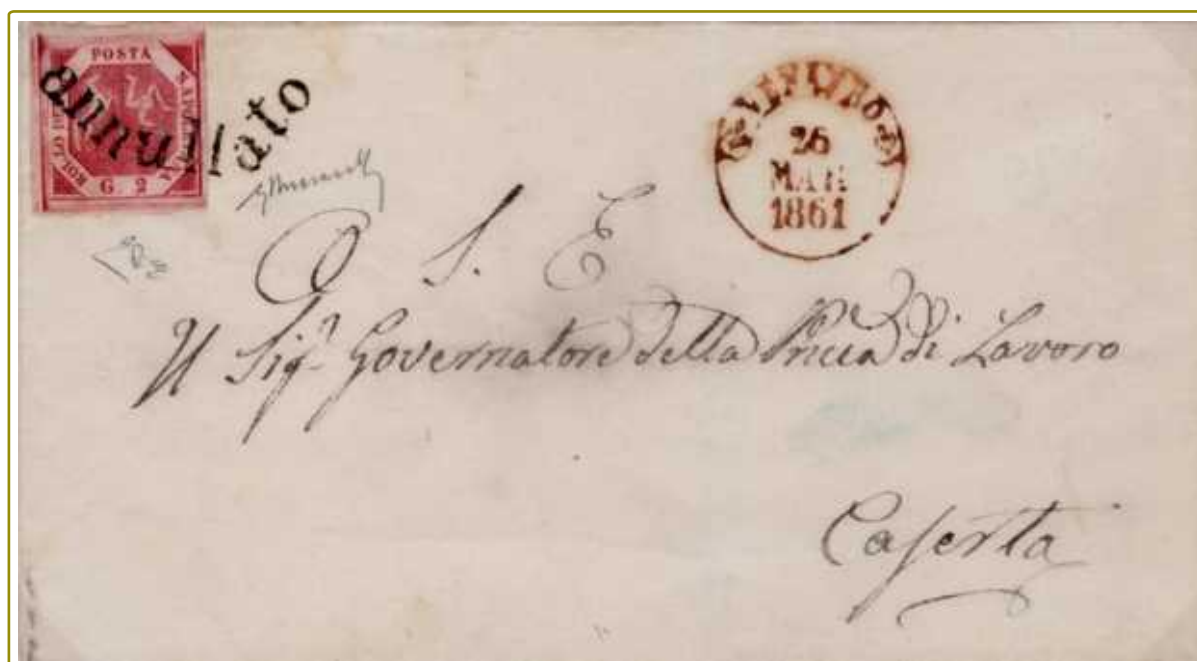 POSTA
NAPOLETANA
BOLLO DELLA
G 2
annullato
26
MAR
1861
S. E.
Il Sigr. Governatore della Prcia di Lavoro
Caserta